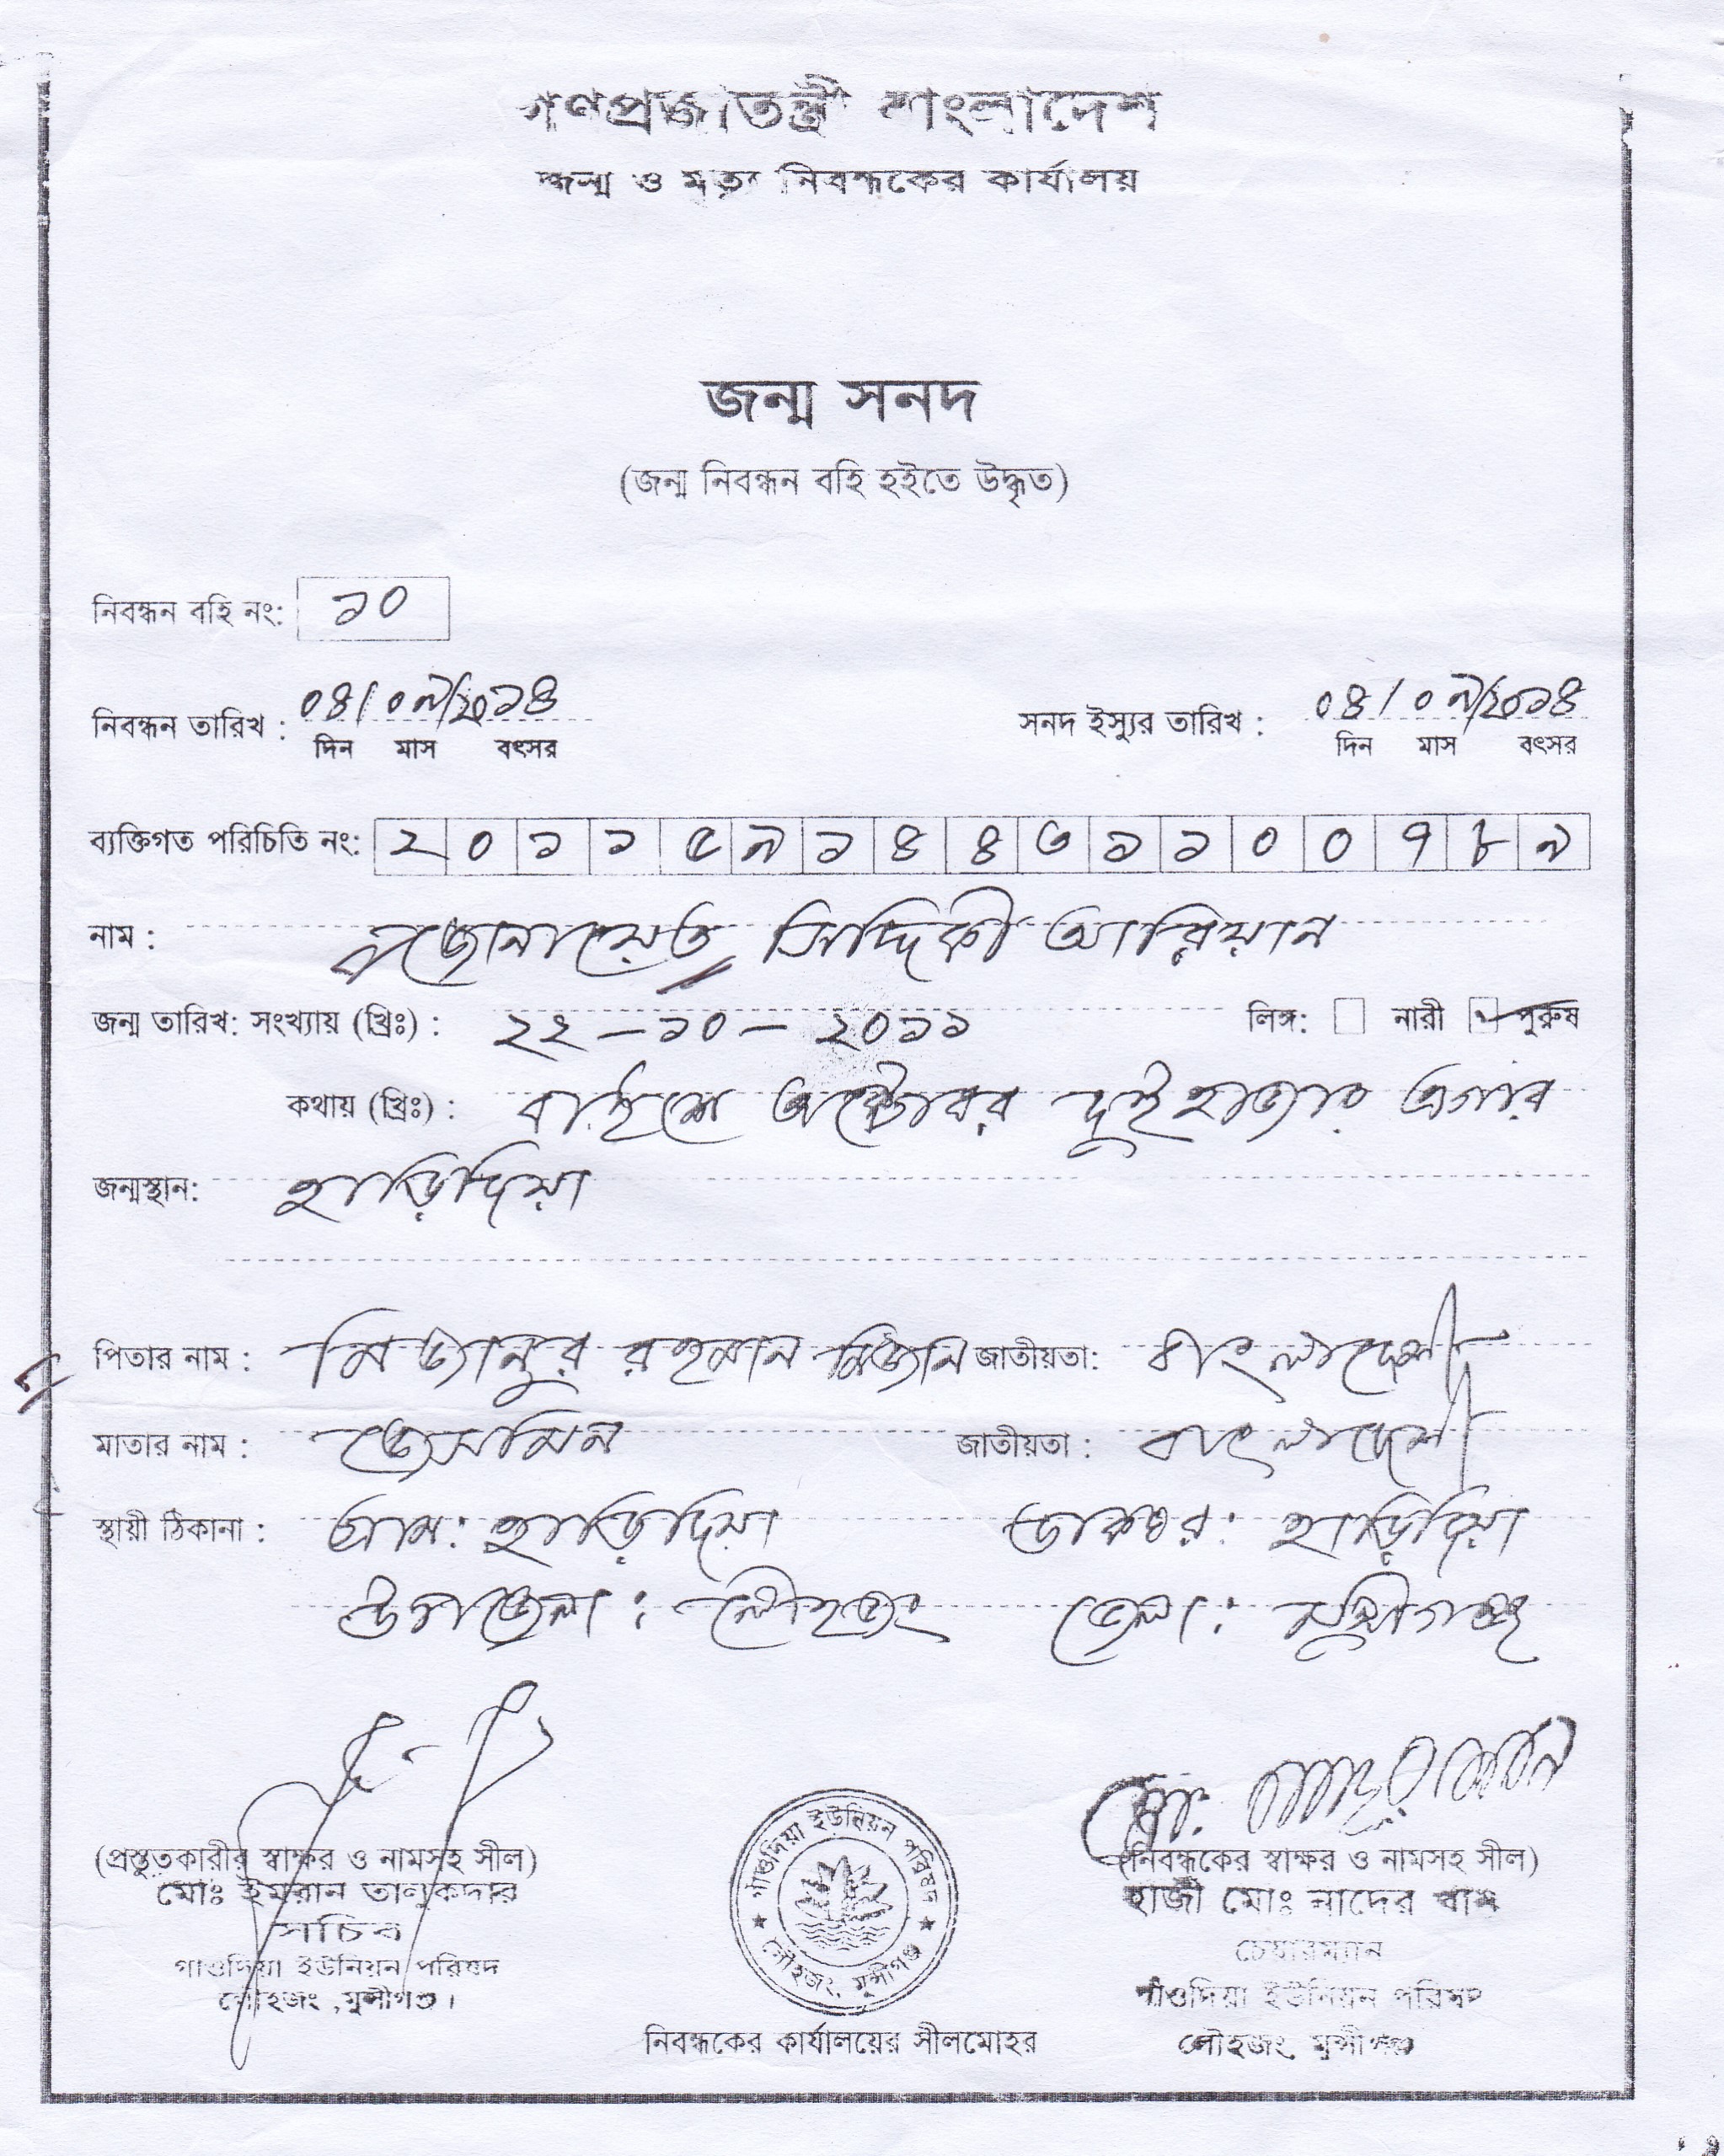 গণপ্রজাতন্ত্রী বাংলাদেশ
জন্ম ও মৃত্যু নিবন্ধকের কার্যালয়
জন্ম সনদ
(জন্ম নিবন্ধন বহি হইতে উদ্ধৃত)
নিবন্ধন বহি নং: ১০
নিবন্ধন তারিখ : ০৪/০৯/২০১৪ সনদ ইস্যুর তারিখ : ০৪/০৯/২০১৪
দিন মাস বৎসর দিন মাস বৎসর
ব্যক্তিগত পরিচিতি নং: ২০১১৫৯১৪৪৩১১০০৭৮৯
নাম : জোনায়েত সিদ্দিকী আরিয়ান
জন্ম তারিখ: সংখ্যায় (খ্রিঃ) : ২২-১০-২০১১ লিঙ্গ: নারী পুরুষ
কথায় (খ্রিঃ) : বাইশে অক্টোবর দুই হাজার এগার
জন্মস্থান: হাড়িদিয়া
পিতার নাম : মিজানুর রহমান মিজান জাতীয়তা: বাংলাদেশী
মাতার নাম : জেসমিন জাতীয়তা : বাংলাদেশী
স্থায়ী ঠিকানা : গ্রাম: হাড়িদিয়া ডাকঘর: হাড়িদিয়া
উপজেলা : লৌহজং জেলা : মুন্সীগঞ্জ
(প্রস্তুতকারীর স্বাক্ষর ও নামসহ সীল) (নিবন্ধকের স্বাক্ষর ও নামসহ সীল)
মোঃ ইমরান তালুকদার হাজী মোঃ নাদের খান
সচিব চেয়ারম্যান
গাওদিয়া ইউনিয়ন পরিষদ গাঁওদিয়া ইউনিয়ন পরিষদ
লৌহজং, মুন্সীগঞ্জ। লৌহজং, মুন্সীগঞ্জ
গাওদিয়া ইউনিয়ন পরিষদ
লৌহজং, মুন্সীগঞ্জ
নিবন্ধকের কার্যালয়ের সীলমোহর